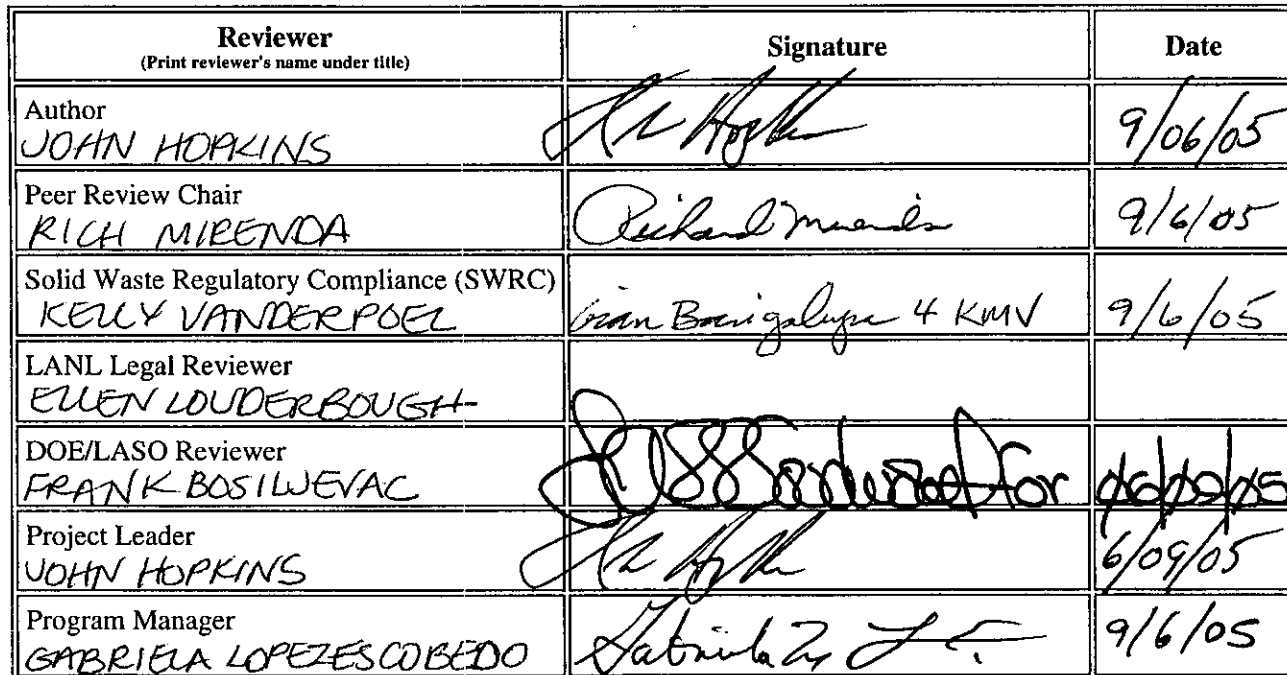 Reviewer Signature Date
(Print reviewer's name under title)
Author
JOHN HOPKINS 9/06/05
Peer Review Chair
RICH MIRENDA Richard Mirenda 9/6/05
Solid Waste Regulatory Compliance (SWRC)
KELLY VANDERPOEL 4 KMV 9/6/05
LANL Legal Reviewer
ELLEN LOUDERBOUGH
DOE/LASO Reviewer
FRANK BOSILJEVAC for
Project Leader
JOHN HOPKINS 6/09/05
Program Manager
GABRIELA LOPEZESCOBEDO 9/6/05